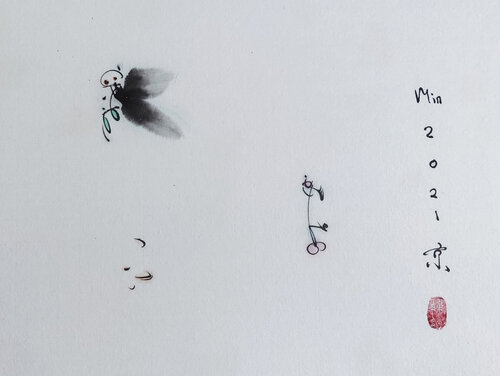 Min
2
0
2
1